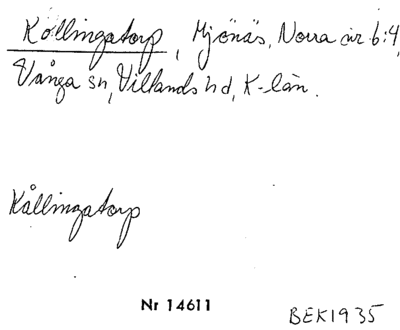 Kollingatorp, Mjönäs, Norra nr 6:4,
Vånga sn, Villands hd, K-län.
Kållingatorp
Nr 14611
BEK1935